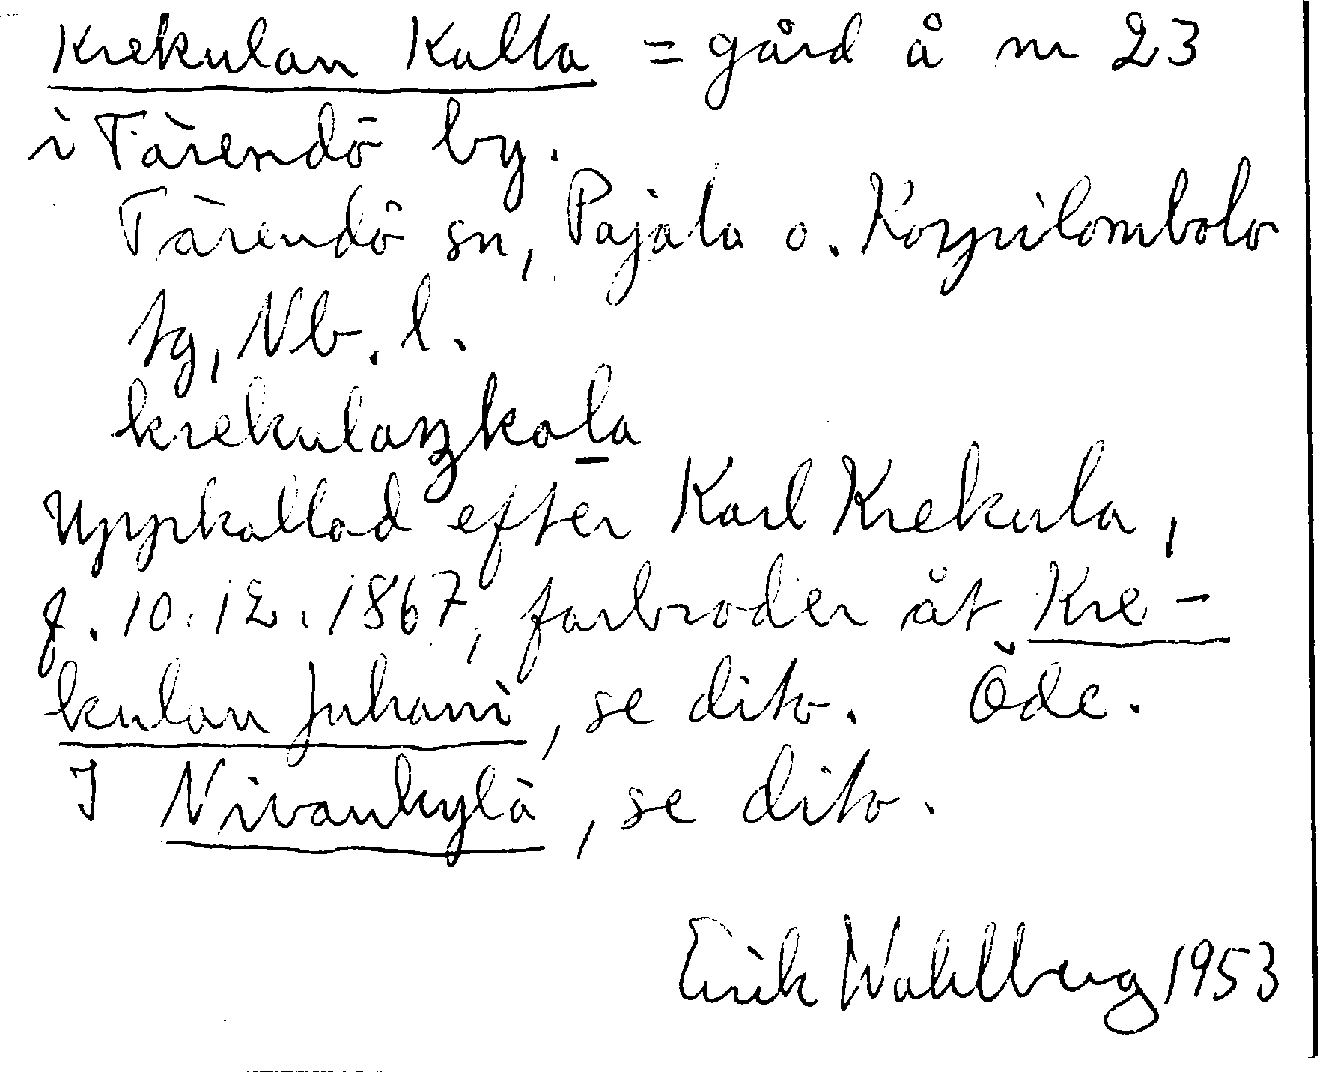 Krekulan Kalla = gård å nr 23
i Tärendö by.
Tärendö sn, Pajala o. Korpilombolo
tg, Nb. l.
krekulaŋkala
Uppkallad efter Karl Krekula,
f. 10.12.1867, farbroder åt Kre-
kulan Juhani, se dito. Öde.
I Nivankylä, se dito.
Erik Wahlberg 1953